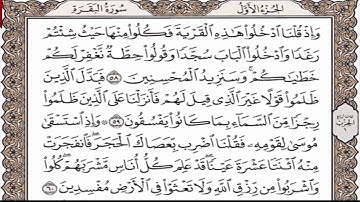 الجزء الأول سورة البقرة
وَإِذْ قُلْنَا ٱدْخُلُوا۟ هَـٰذِهِ ٱلْقَرْيَةَ فَكُلُوا۟ مِنْهَا حَيْثُ شِئْتُمْ
رَغَدًا وَٱدْخُلُوا۟ ٱلْبَابَ سُجَّدًا وَقُولُوا۟ حِطَّةٌ نَّغْفِرْ لَكُمْ
خَطَـٰيَـٰكُمْ ۚ وَسَنَزِيدُ ٱلْمُحْسِنِينَ ٥٨ فَبَدَّلَ ٱلَّذِينَ
ظَلَمُوا۟ قَوْلًا غَيْرَ ٱلَّذِى قِيلَ لَهُمْ فَأَنزَلْنَا عَلَى ٱلَّذِينَ ظَلَمُوا۟
رِجْزًا مِّنَ ٱلسَّمَآءِ بِمَا كَانُوا۟ يَفْسُقُونَ ٥٩ ۞ وَإِذِ ٱسْتَسْقَىٰ
مُوسَىٰ لِقَوْمِهِۦ فَقُلْنَا ٱضْرِب بِّعَصَاكَ ٱلْحَجَرَ ۖ فَٱنفَجَرَتْ
مِنْهُ ٱثْنَتَا عَشْرَةَ عَيْنًا ۖ قَدْ عَلِمَ كُلُّ أُنَاسٍ مَّشْرَبَهُمْ ۖ كُلُوا۟
وَٱشْرَبُوا۟ مِن رِّزْقِ ٱللَّهِ وَلَا تَعْثَوْا۟ فِى ٱلْأَرْضِ مُفْسِدِينَ ٦٠